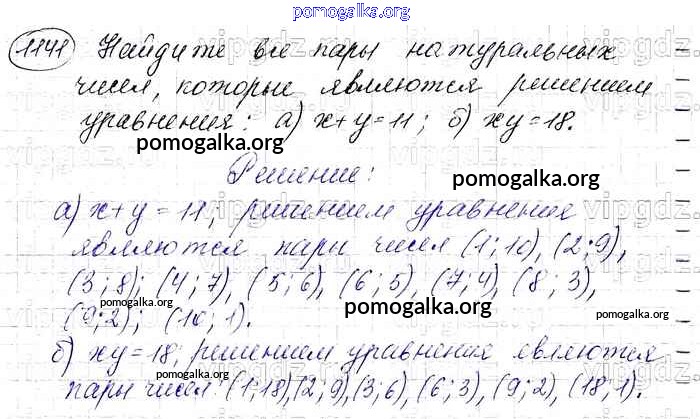 pomogalka.org
1141 Найдите все пары натуральных
чисел, которые являются решением
уравнения: а) x+y=11; б) xy=18.
pomogalka.org
Решение:
pomogalka.org
а) x+y=11; решением уравнения
являются пары чисел (1;10), (2;9),
(3;8); (4;7), (5;6), (6;5), (7;4), (8;3),
pomogalka.org
pomogalka.org
(9;2); (10;1).
б) xy=18; решением уравнения являются
пары чисел: (1;18), (2;9), (3;6), (6;3), (9;2), (18;1).
pomogalka.org
pomogalka.org